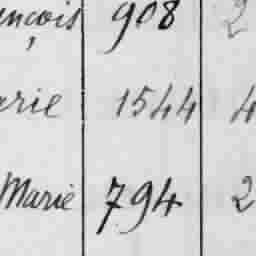 ançois 908 2
arie 1544 4
Marie 794 2